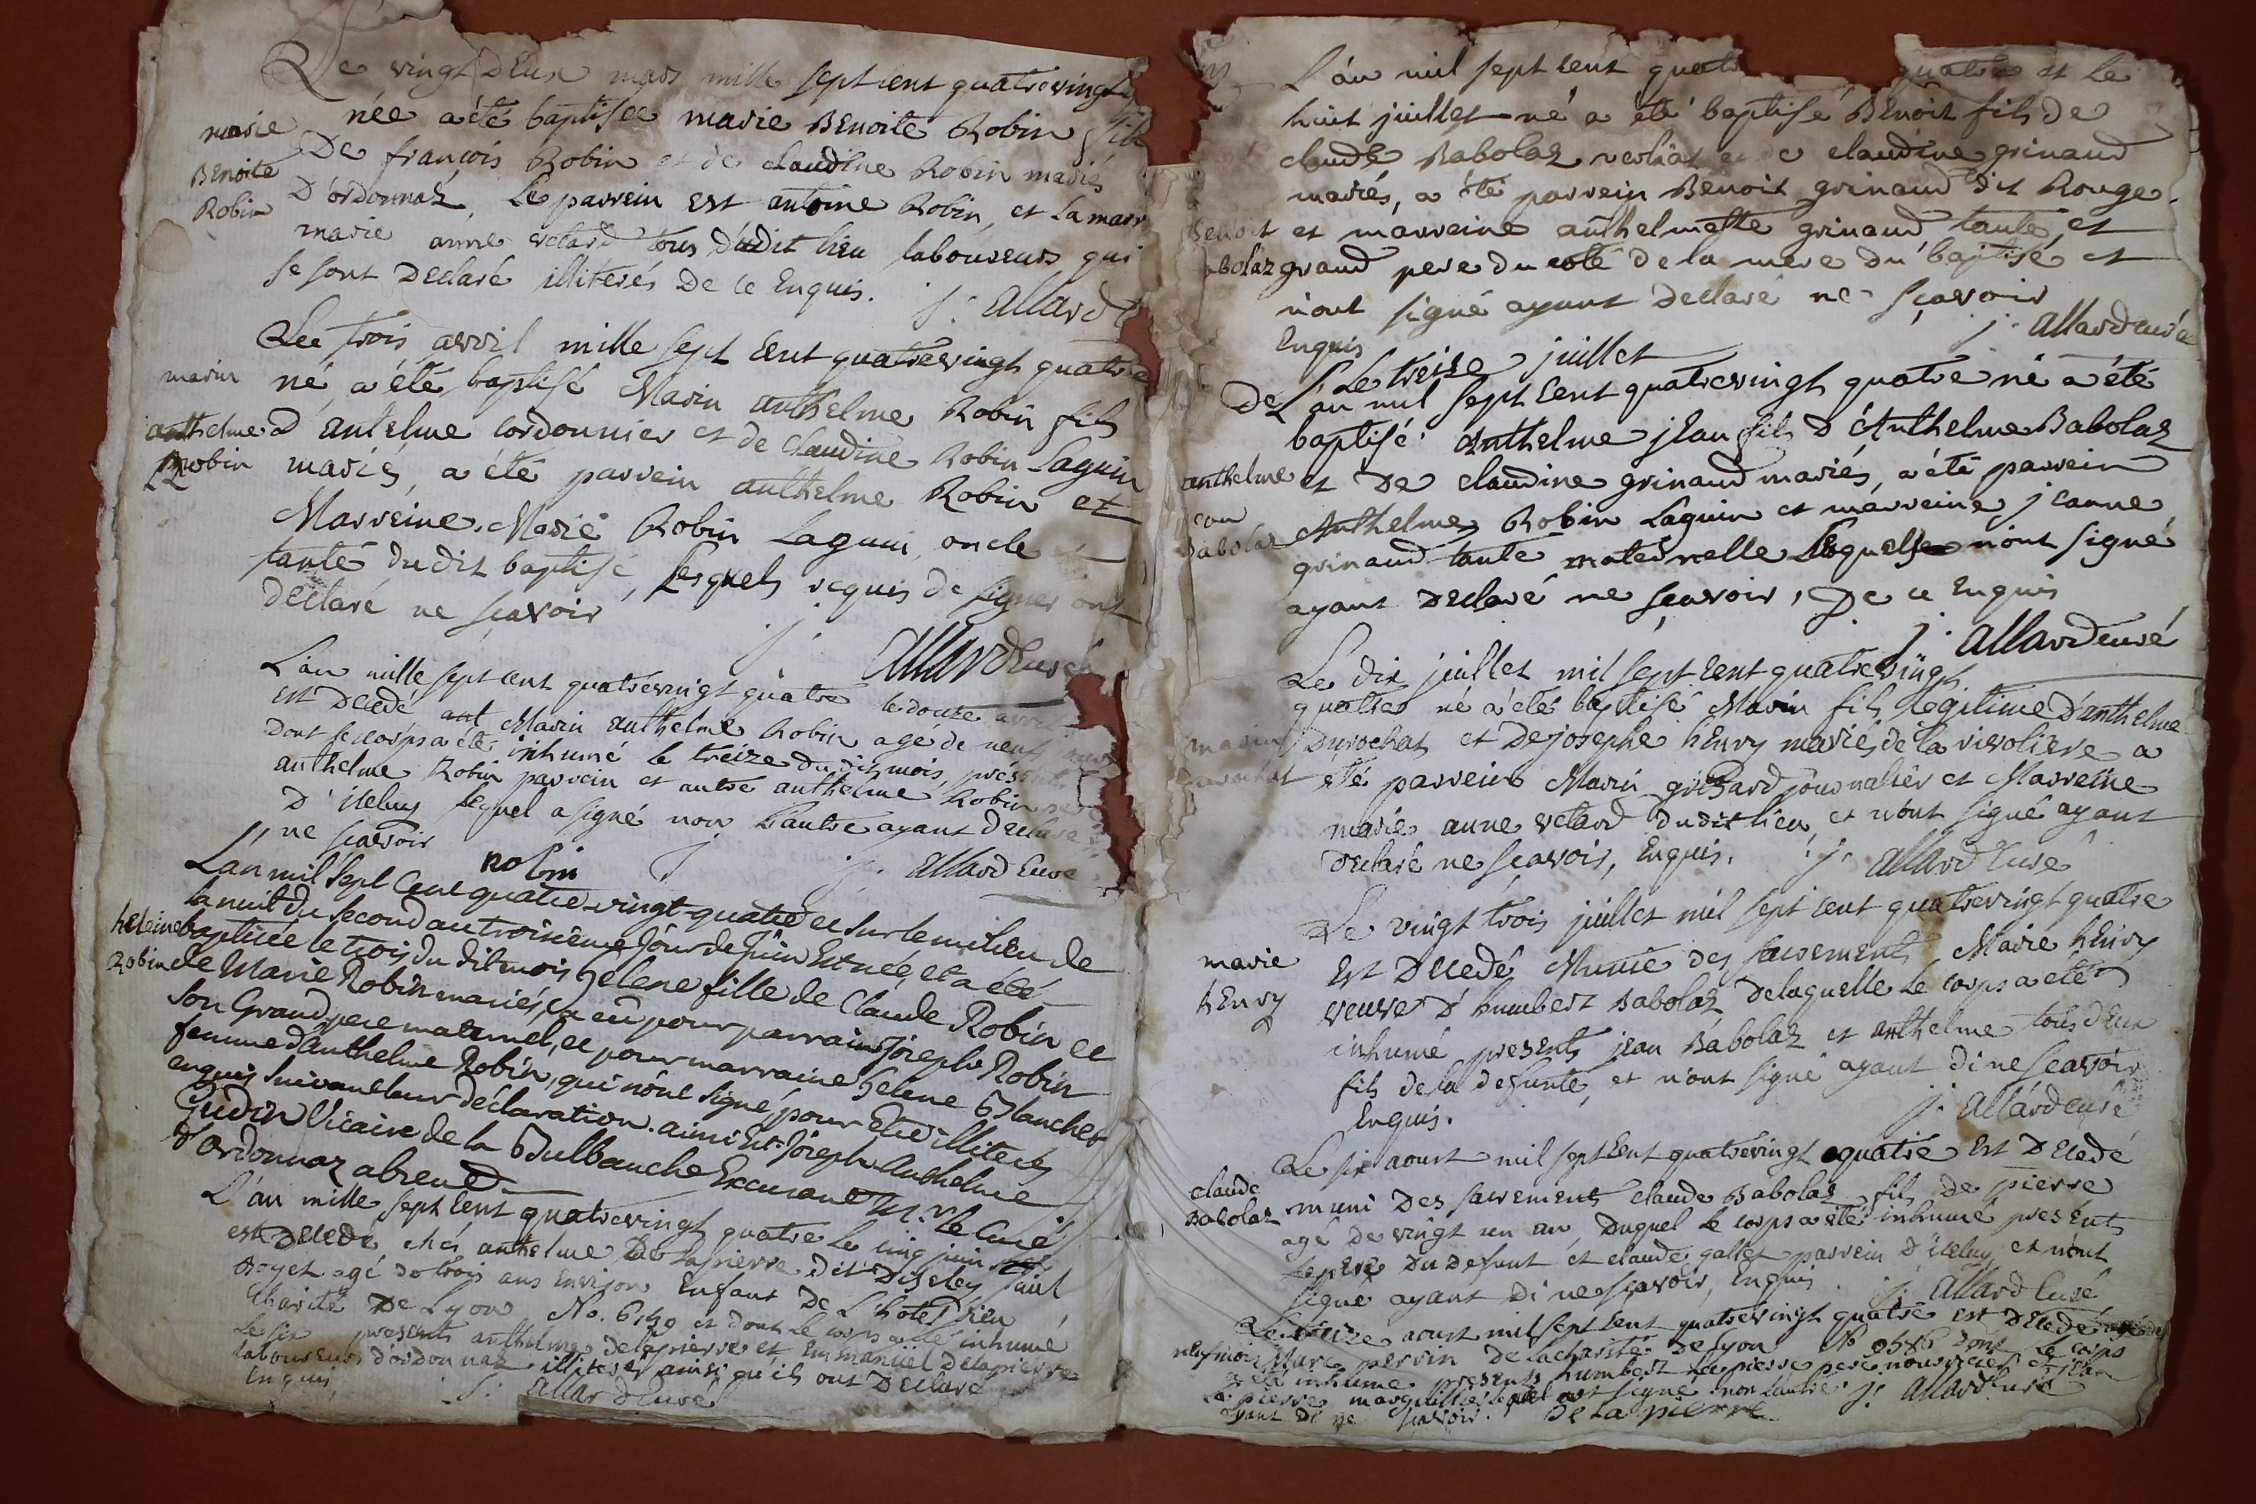 Le vingt deux mars mille sept cent quatrevingt
née a été baptisée marie Benoite Robin
marie
Benoite
Robin
De françois Robin et de claudine Robin mariés
D'ordonnaz, Le parrein est antoine Robin, et la marr
marie anne velard tous dudit lieu laboureurs qui
se sont Declaré illiterés De ce Enquis. j. allard
Le trois avril mille sept cent quatrevingt quatre
né, a été baptisé Marin anthelme Robin fils
marin
anthelme
Robin
d'antelme cordonnier et de Claudine Robin Laguin
mariés, a été parrein anthelme Robin et
Marreine Marie Robin Laguin, oncle et
tante dudit baptisé, Lesquels requis de signer ont
declaré ne sçavoir j. allard curé
L'an mille sept cent quatrevingt quatre le douze avril
est Decedé Marin anthelme Robin agé de neuf jours
dont le corps a été inhumé le treize du dit mois, présents
anthelme Robin parrein et autre anthelme Robin
D'iceluy lequel a signé non L'autre ayant declaré
ne sçavoir
robin j. allard Curé
L'an mil sept cent quatre-vingt-quatre et sur le milieu de
la nuit du second au troisième Jour de Juin Est née, et a été
heleine
Robin
baptisée le trois du dit mois helene fille de Claude Robin et
de Marie Robin mariés, a eû pour parrain Joseph Robin
son Grand-pere maternel, et pour marraine helene Blanchet
femme d'anthelme Robin, qui n'ont signé, pour Etre illiterés
enquis suivant leur déclaration. ainsi Est. Joseph Anthelme
Gudin Vicaire de la Bulbanche Excusant Mr. le Curé
d'Ordonnaz absent
L'an mille sept cent quatrevingt quatre le cinq juin
est Decedé chés anthelme De Lapierre dit
agé de trois ans environ Enfant De L'hotel Dieu
Charité De Lyon No. et dont le corps a été inhumé
Le six presents anthelme delapierre et Emmanüel Delapierre
laboureurs d'ordonnaz illiterés ainsi qu'ils ont Declaré
Enquis, j. allard Curé
L'an mil sept cent quatre quatre et le
huit juillet né a été baptisé Benoit fils de
claude Babolaz et claudine grinaud
mariés, a été parrein Benoit grinaud dit Rouge
Benoit
abolaz
et marreine anthelmette grinaud tante, et
grand pere du coté de la mere du baptisé et
n'ont signé ayant Declaré ne sçavoir
Enquis j. allard curé
Le treize juillet
De L'an mil sept cent quatrevingt quatre né a été
baptisé Anthelme jean fils d'Anthelme Babolaz
anthelme
jean
Babolaz
et De claudine grinaud mariés, a été parrein
Anthelme Robin Laguin et marreine jeanne
grinaud tante maternelle Lesquels n'ont signé
ayant Declaré ne sçavoir, De ce Enquis
j. allard curé
Le dix juillet mil sept cent quatrevingt
quatre né a été baptisé Marin fils Legitime d'anthelme
marin
Durochat et De josephe henry mariés de la rivoliere a
été parrein Marin grobard journalier et Marreine
marie anne velard dudit lieu, et n'ont signé ayant
Declaré ne sçavoir, Enquis. j. allard Curé
Le vingt trois juillet mil sept cent quatrevingt quatre
marie
henry
Est Decedé Munie des sacrements Marie henry
veuve d'humbert Babolaz, De laquelle Le corps a été
inhumé presents jean Babolaz et anthelme tous deux
fils de la defunte, et n'ont signé ayant di ne sçavoir
Enquis. j. allard curé
Le six aoust mil sept cent quatrevingt quatre Est Decedé
claude
Babolaz
muni Des sacrements claude Babolaz fils de pierre
agé de vingt un an, Duquel Le corps a été inhumé presents
Le pere Du defunt et claude gallet parrein D'iceluy, et n'ont
signé ayant Di ne sçavoir, Enquis. j. allard Curé
Le treize aoust mil sept cent quatrevingt quatre est Decedé
neuf mois Marc perrin De la charité De Lyon No dont Le corps
a été inhumé presents humbert Lapierre pere nourricier et jean
La pierre marguillier lequel a signé non L'autre j. allard curé
ayant di ne sçavoir. De la pierre